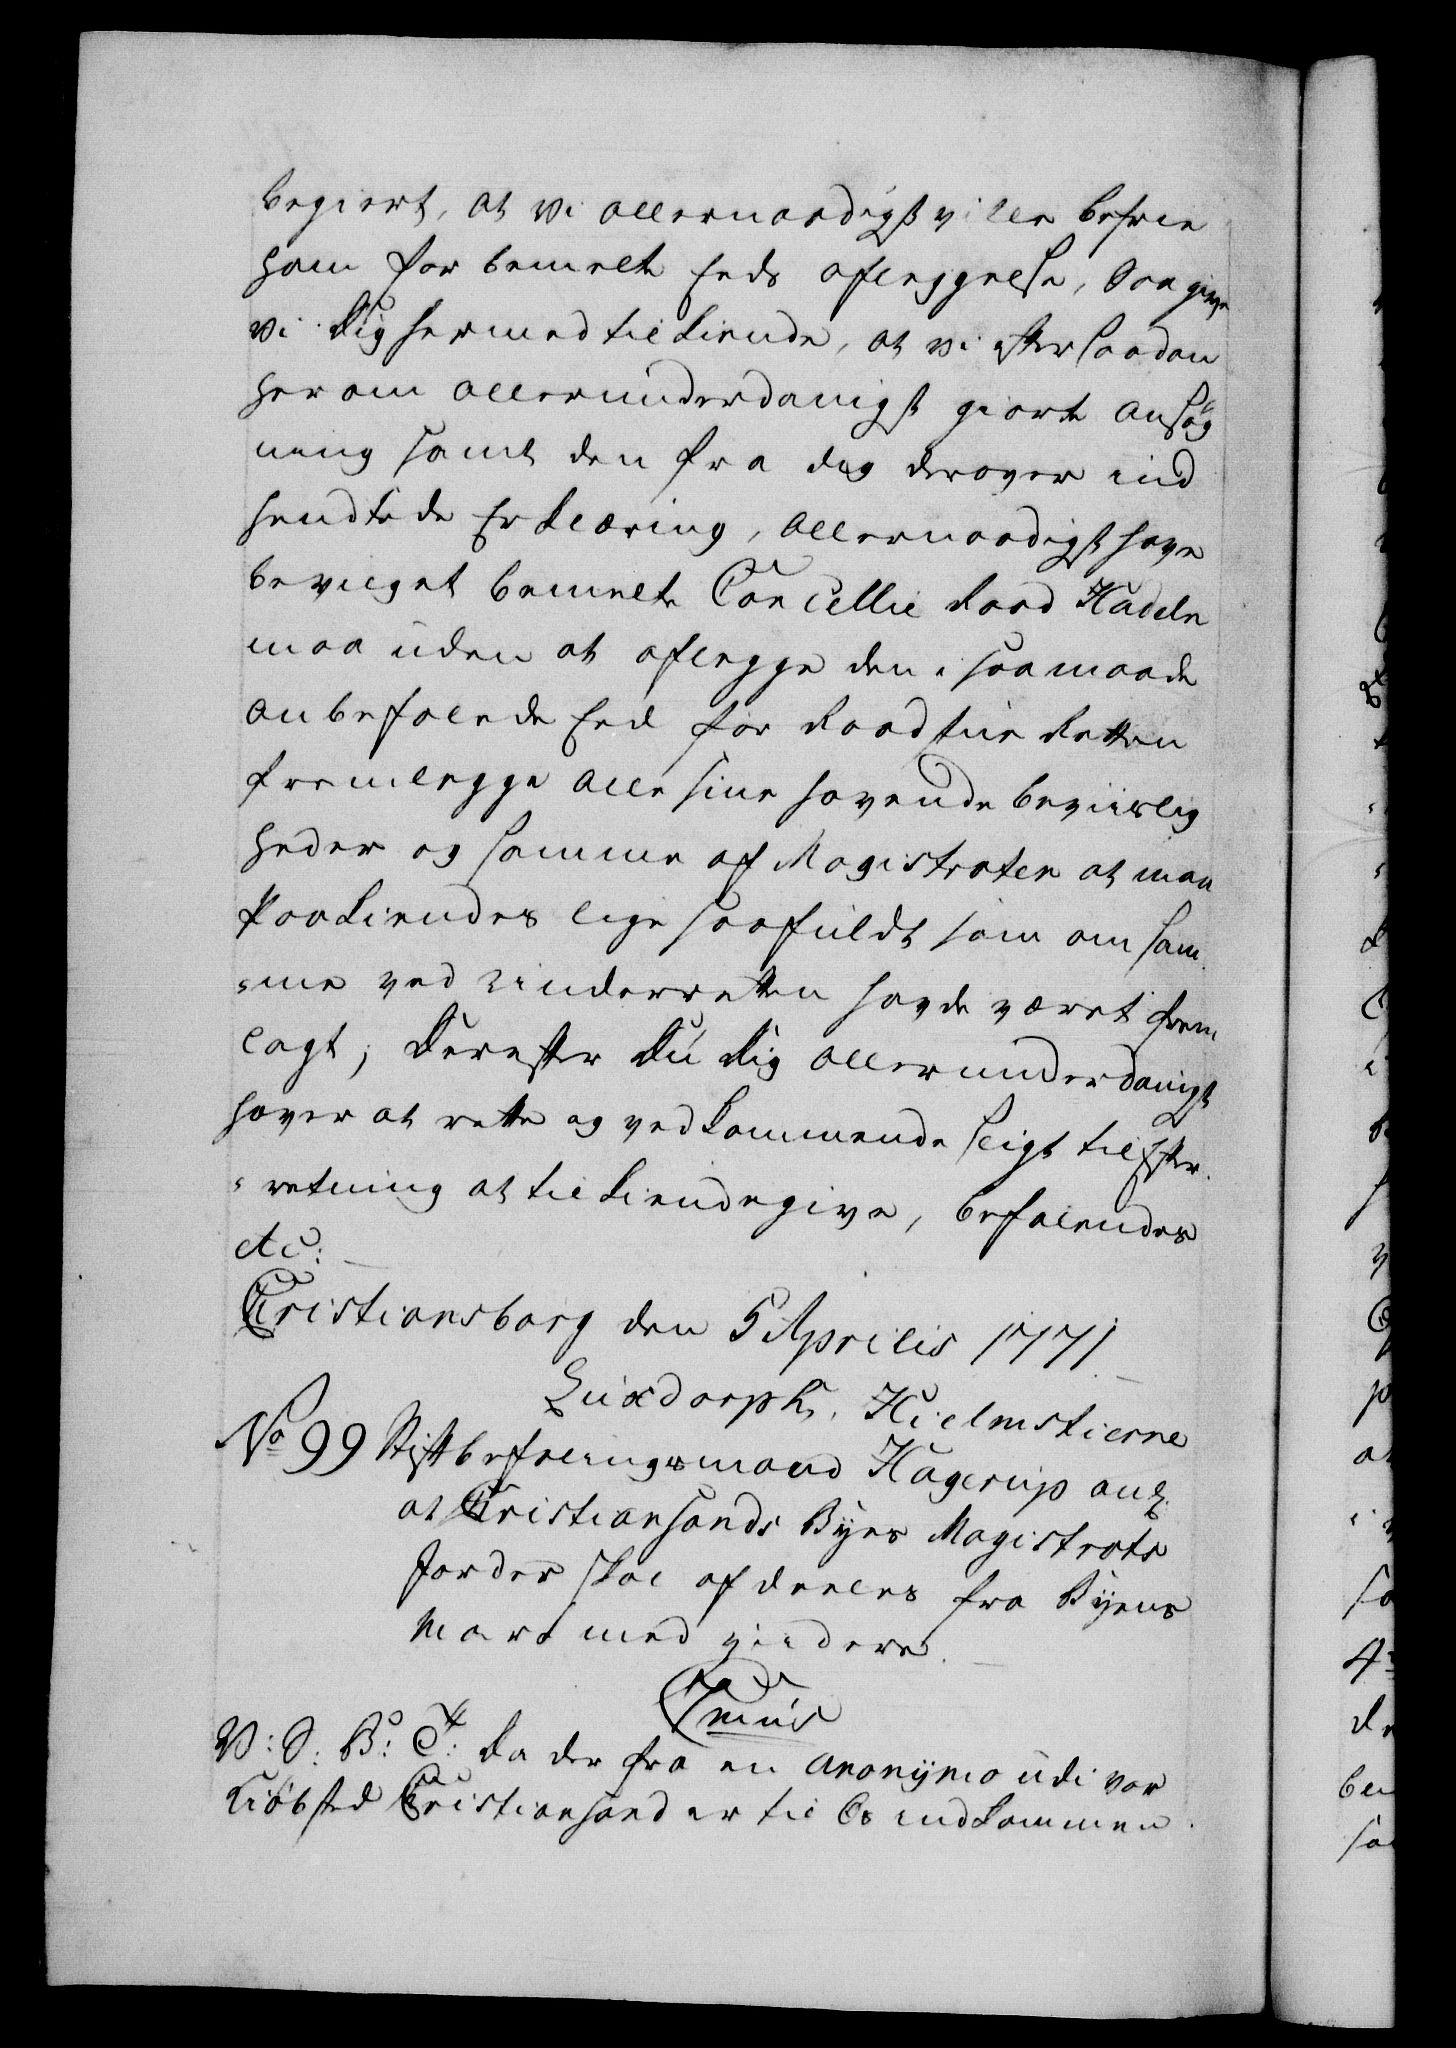 begiert, at vi allernaadigst ville befrie
ham for bemelte Eeds aflæggelse, Saa give
vi Dig hermed tilkiende, at vi efter saadan
herom allerunderdanigst giorte ansøg
ning samt den fra dig derover ind
sendtede Erklæring, allernaadigst have
bevilget bemelte Cancellie Raad Hadeln
maa uden at aflegge den i saa maade
anbefalede Eed for Raadstue Retten
fremlegge alle sine havende beviislig
heder og samme af Magistraten at maa
paakiendes lige saafuldt som om sam
-me ved Underretten havde været frem
lagt; Derefter Du Dig allerunderdanigst
haver at rette og vedkommende sligt til Efter
-retning at tilkiendegive, befalendes
etc:
Christiansborg den 5 Aprilis 1771
Luxdorph, Hielmstierne
No 99 Stiftbefalingsmand Hagerup anl:
at Christiansands Byes Magistrats
Jorder skal afdeeles fra Byens
Mark med gierder.
7mus
V: S: B: T: Da der fra en anonymo udi vor
Kiøbsted Christiansand er til Os indkommen